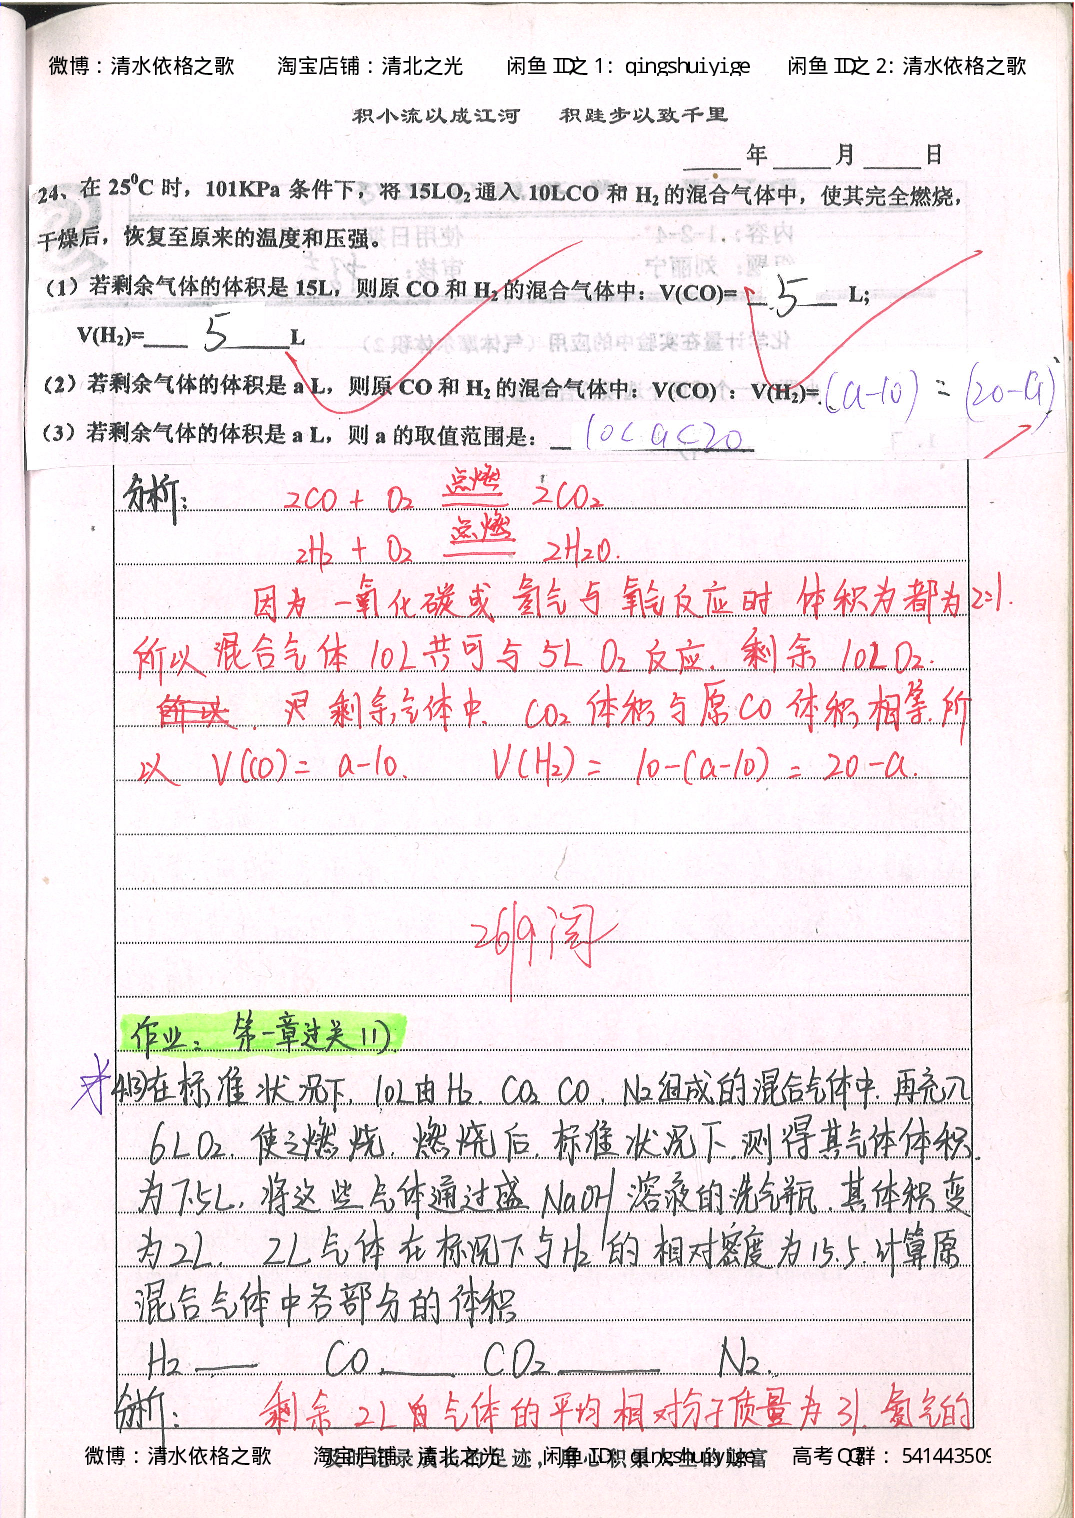 微博：清水依格之歌 淘宝店铺：清北之光 闲鱼ID之1：qingshuiyige 闲鱼ID之2：清水依格之歌
积小流以成江河 积跬步以致千里
____年____月____日
24、在25⁰C时，101KPa条件下，将15LO₂通入10LCO和H₂的混合气体中，使其完全燃烧，
干燥后，恢复至原来的温度和压强。
（1）若剩余气体的体积是15L，则原CO和H₂的混合气体中：V(CO)=__5__L;
V(H₂)=___5___L
（2）若剩余气体的体积是a L，则原CO和H₂的混合气体中：V(CO)：V(H₂)=(a-10)=(20-a)
（3）若剩余气体的体积是a L，则a的取值范围是：10<a<20
分析： 2CO + O₂ 点燃 2CO₂
2H₂ + O₂ 点燃 2H₂O.
因为一氧化碳或氢气与氧气反应时体积为都为2:1.
所以混合气体10L共可与5L O₂反应.剩余10LO₂.
又剩余气体中.CO₂体积与原CO体积相等.所
以 V(CO)= a-10. V(H₂)= 10-(a-10) = 20-a.
26/9
作业：第一章过关(1)
在标准状况下,10L由H₂.CO₂ CO.N₂组成的混合气体中.再充入
6LO₂.使之燃烧.燃烧后.标准状况下.测得其气体体积
为7.5L,将这些气体通过盛NaOH溶液的洗气瓶.其体积变
为2L. 2L气体在标况下与H₂的相对密度为15.5.计算原
混合气体中各部分的体积
H₂____ CO____ CO₂____ N₂.
分析： 剩余2L气体的平均相对分子质量为31.氮气的
微博：清水依格之歌 淘宝店铺：清北之光 闲鱼ID：qingshuiyige 高考QQ群：541443509